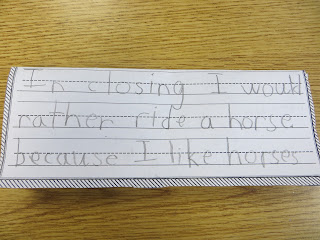 In closing I would
rather ride a horse
because I like horses